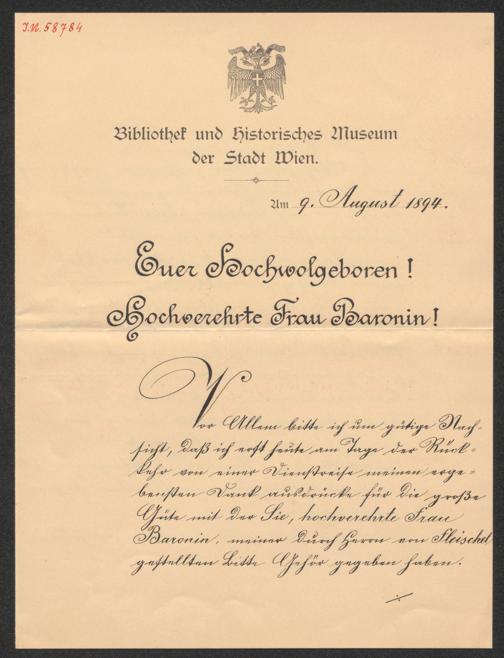 I.N. 58784
Bibliothek und Historisches Museum
der Stadt Wien.
Am 9. August 1894.
Euer Hochwolgeboren!
Hochverehrte Frau Baronin!
Vor Allem bitte ich um gütige Nach-
sicht, daß ich erst heute am Tage der Rück-
kehr von einer Dienstreise meinen erge-
bensten Dank ausdrücke für die große
Güte mit der Sie, hochverehrte Frau
Baronin, meiner durch Herrn von Fleischel
gestellten Bitte Gehör gegeben haben.